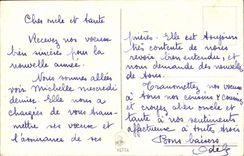 Cher oncle et tante
Recevez nos vœux
bien sincères pour la
nouvelle année.
Nous sommes allées
voir Michelle mercredi
dernier. Elle nous a
chargées de vous trans-
mettre ses vœux et
l'assurance de ses
prières. Elle est toujours
très contente de nous
revoir bien entendu; et
nous demande des nouvelles de
tous.
Transmettez nos vœux à
tous nos cousins & cousines
et croyez cher oncle et
tante à nos sentiments
affectueux à toute tous
Bons baisers
Odette